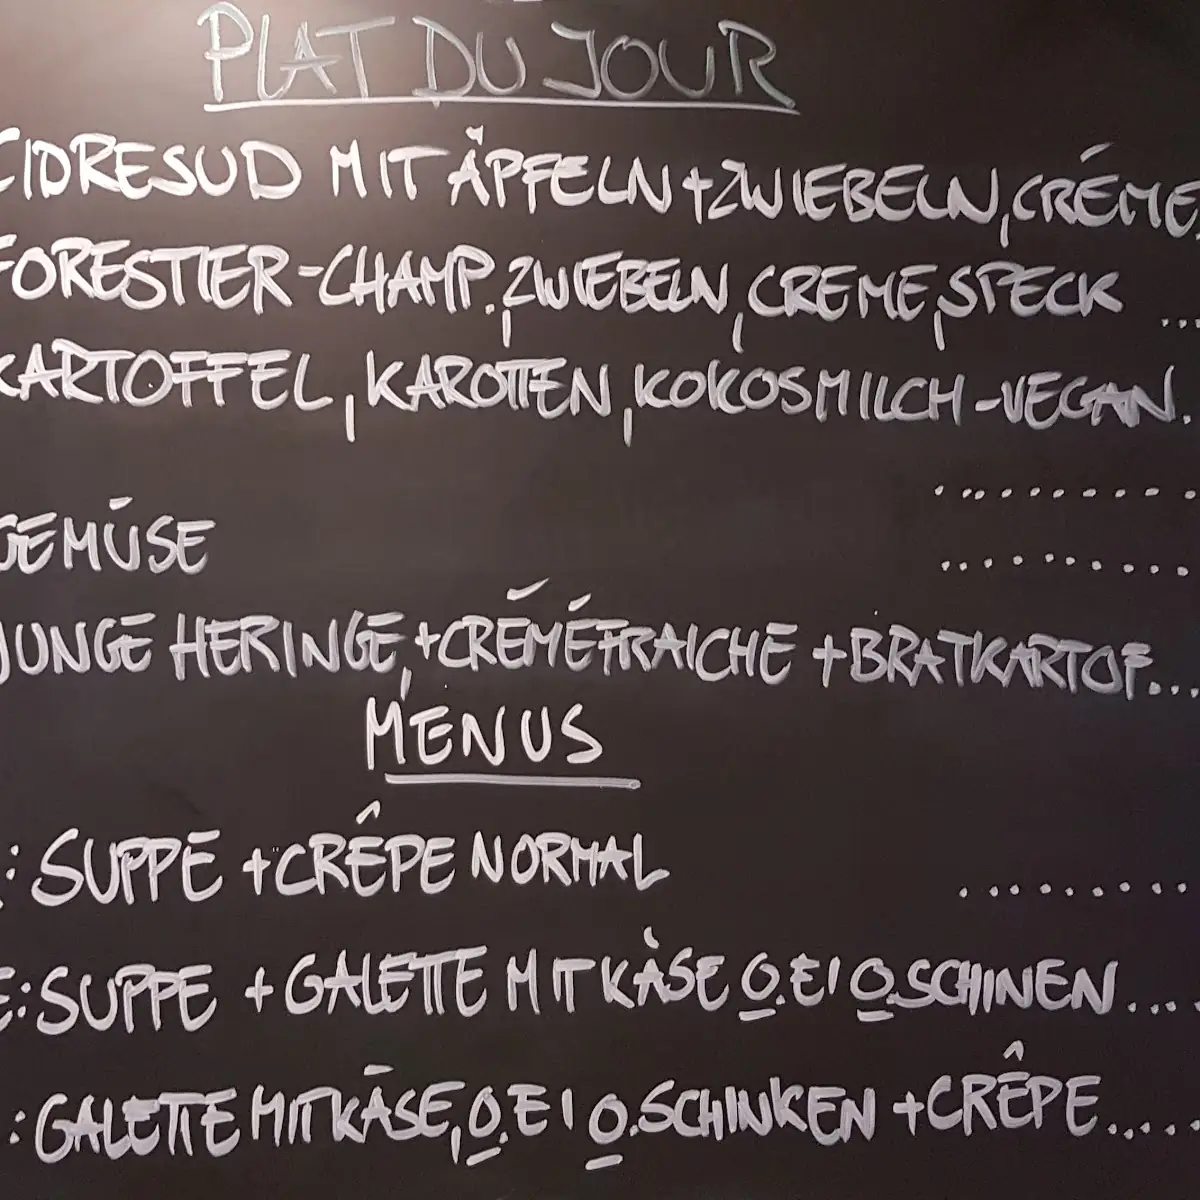 PLAT DU JOUR
CIDRESUD MIT ÄPFELN + ZWIEBELN, CRÉME,
FORESTIER - CHAMP., ZWIEBELN, CREME, SPECK ...
KARTOFFEL, KAROTTEN, KOKOSMILCH - VEGAN.
..........
GEMÜSE ..........
JUNGE HERINGE, + CRÉMÉFRAICHE + BRATKARTOF...
MENUS
: SUPPE + CRÊPE NORMAL .........
E: SUPPE + GALETTE MIT KÄSE O. EI O. SCHINEN ....
: GALETTE MIT KÄSE, O. EI O. SCHINKEN + CRÊPE.....